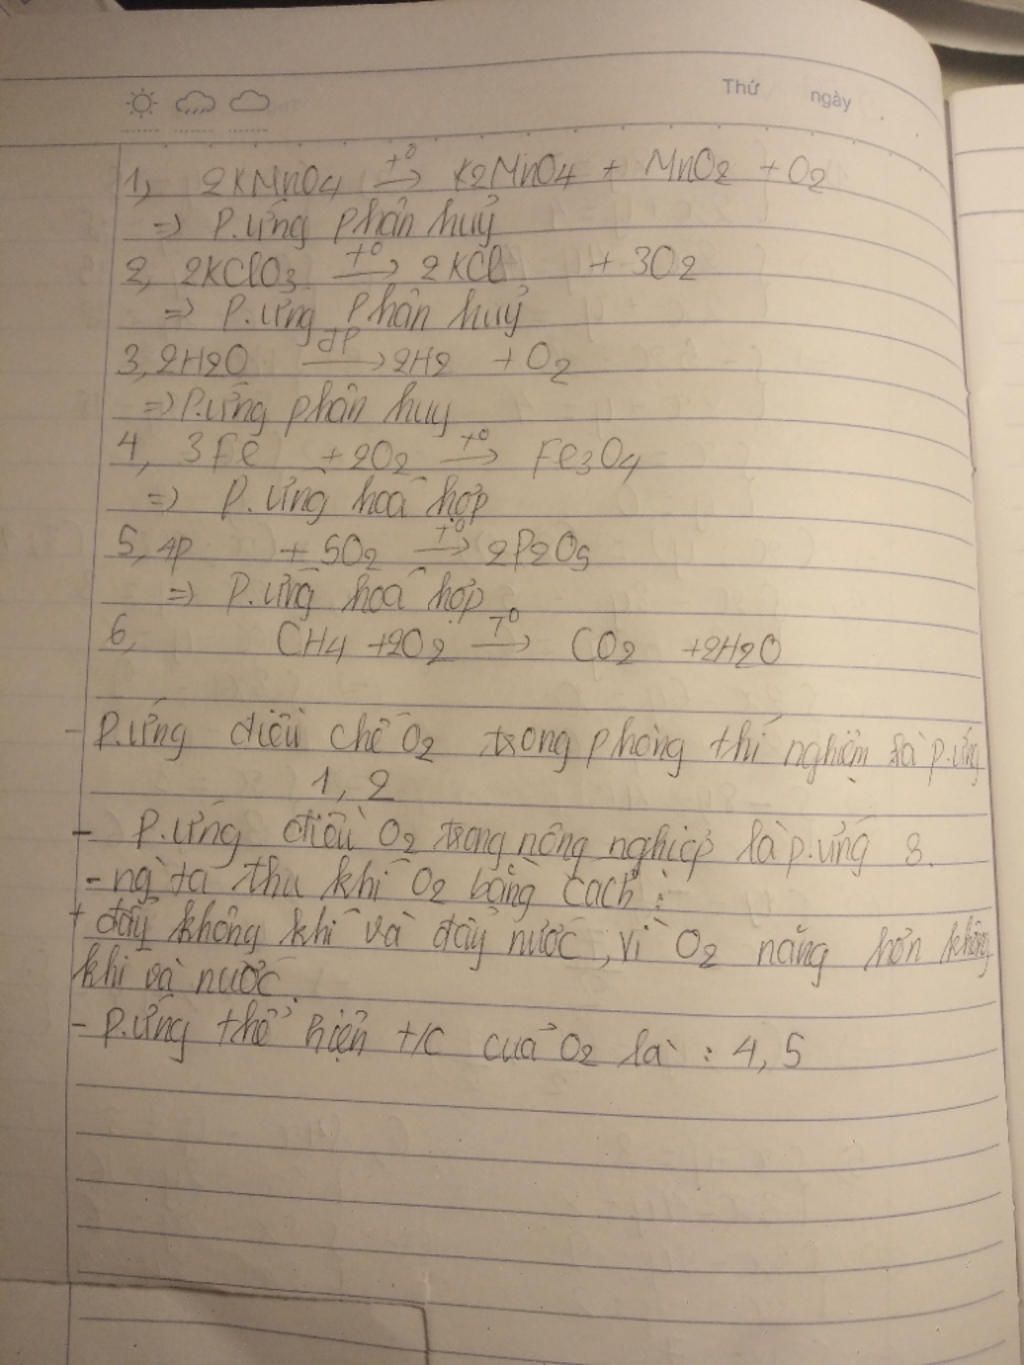 Thứ ngày
1, 2KMnO4 t° → K2MnO4 + MnO2 + O2
=> P.ứng phân huỷ
2, 2KClO3 t° → 2KCl + 3O2
=> P.ứng phân huỷ
3, 2H2O đp → 2H2 + O2
=> P.ứng phân huỷ
4, 3Fe + 2O2 t° → Fe3O4
=> P.ứng hoá hợp
5, 4P + 5O2 t° → 2P2O5
=> P.ứng hoá hợp
6, CH4 + 2O2 t° → CO2 + 2H2O
- P.ứng điều chế O2 trong phòng thí nghiệm là p.ứng
1, 2
- P.ứng điều O2 trong nông nghiệp là p.ứng 3.
- ng ta thu khí O2 bằng cách :
+ đẩy không khí và đẩy nước, vì O2 nặng hơn không
khí và nước.
- P.ứng thể hiện t/c của O2 là : 4, 5